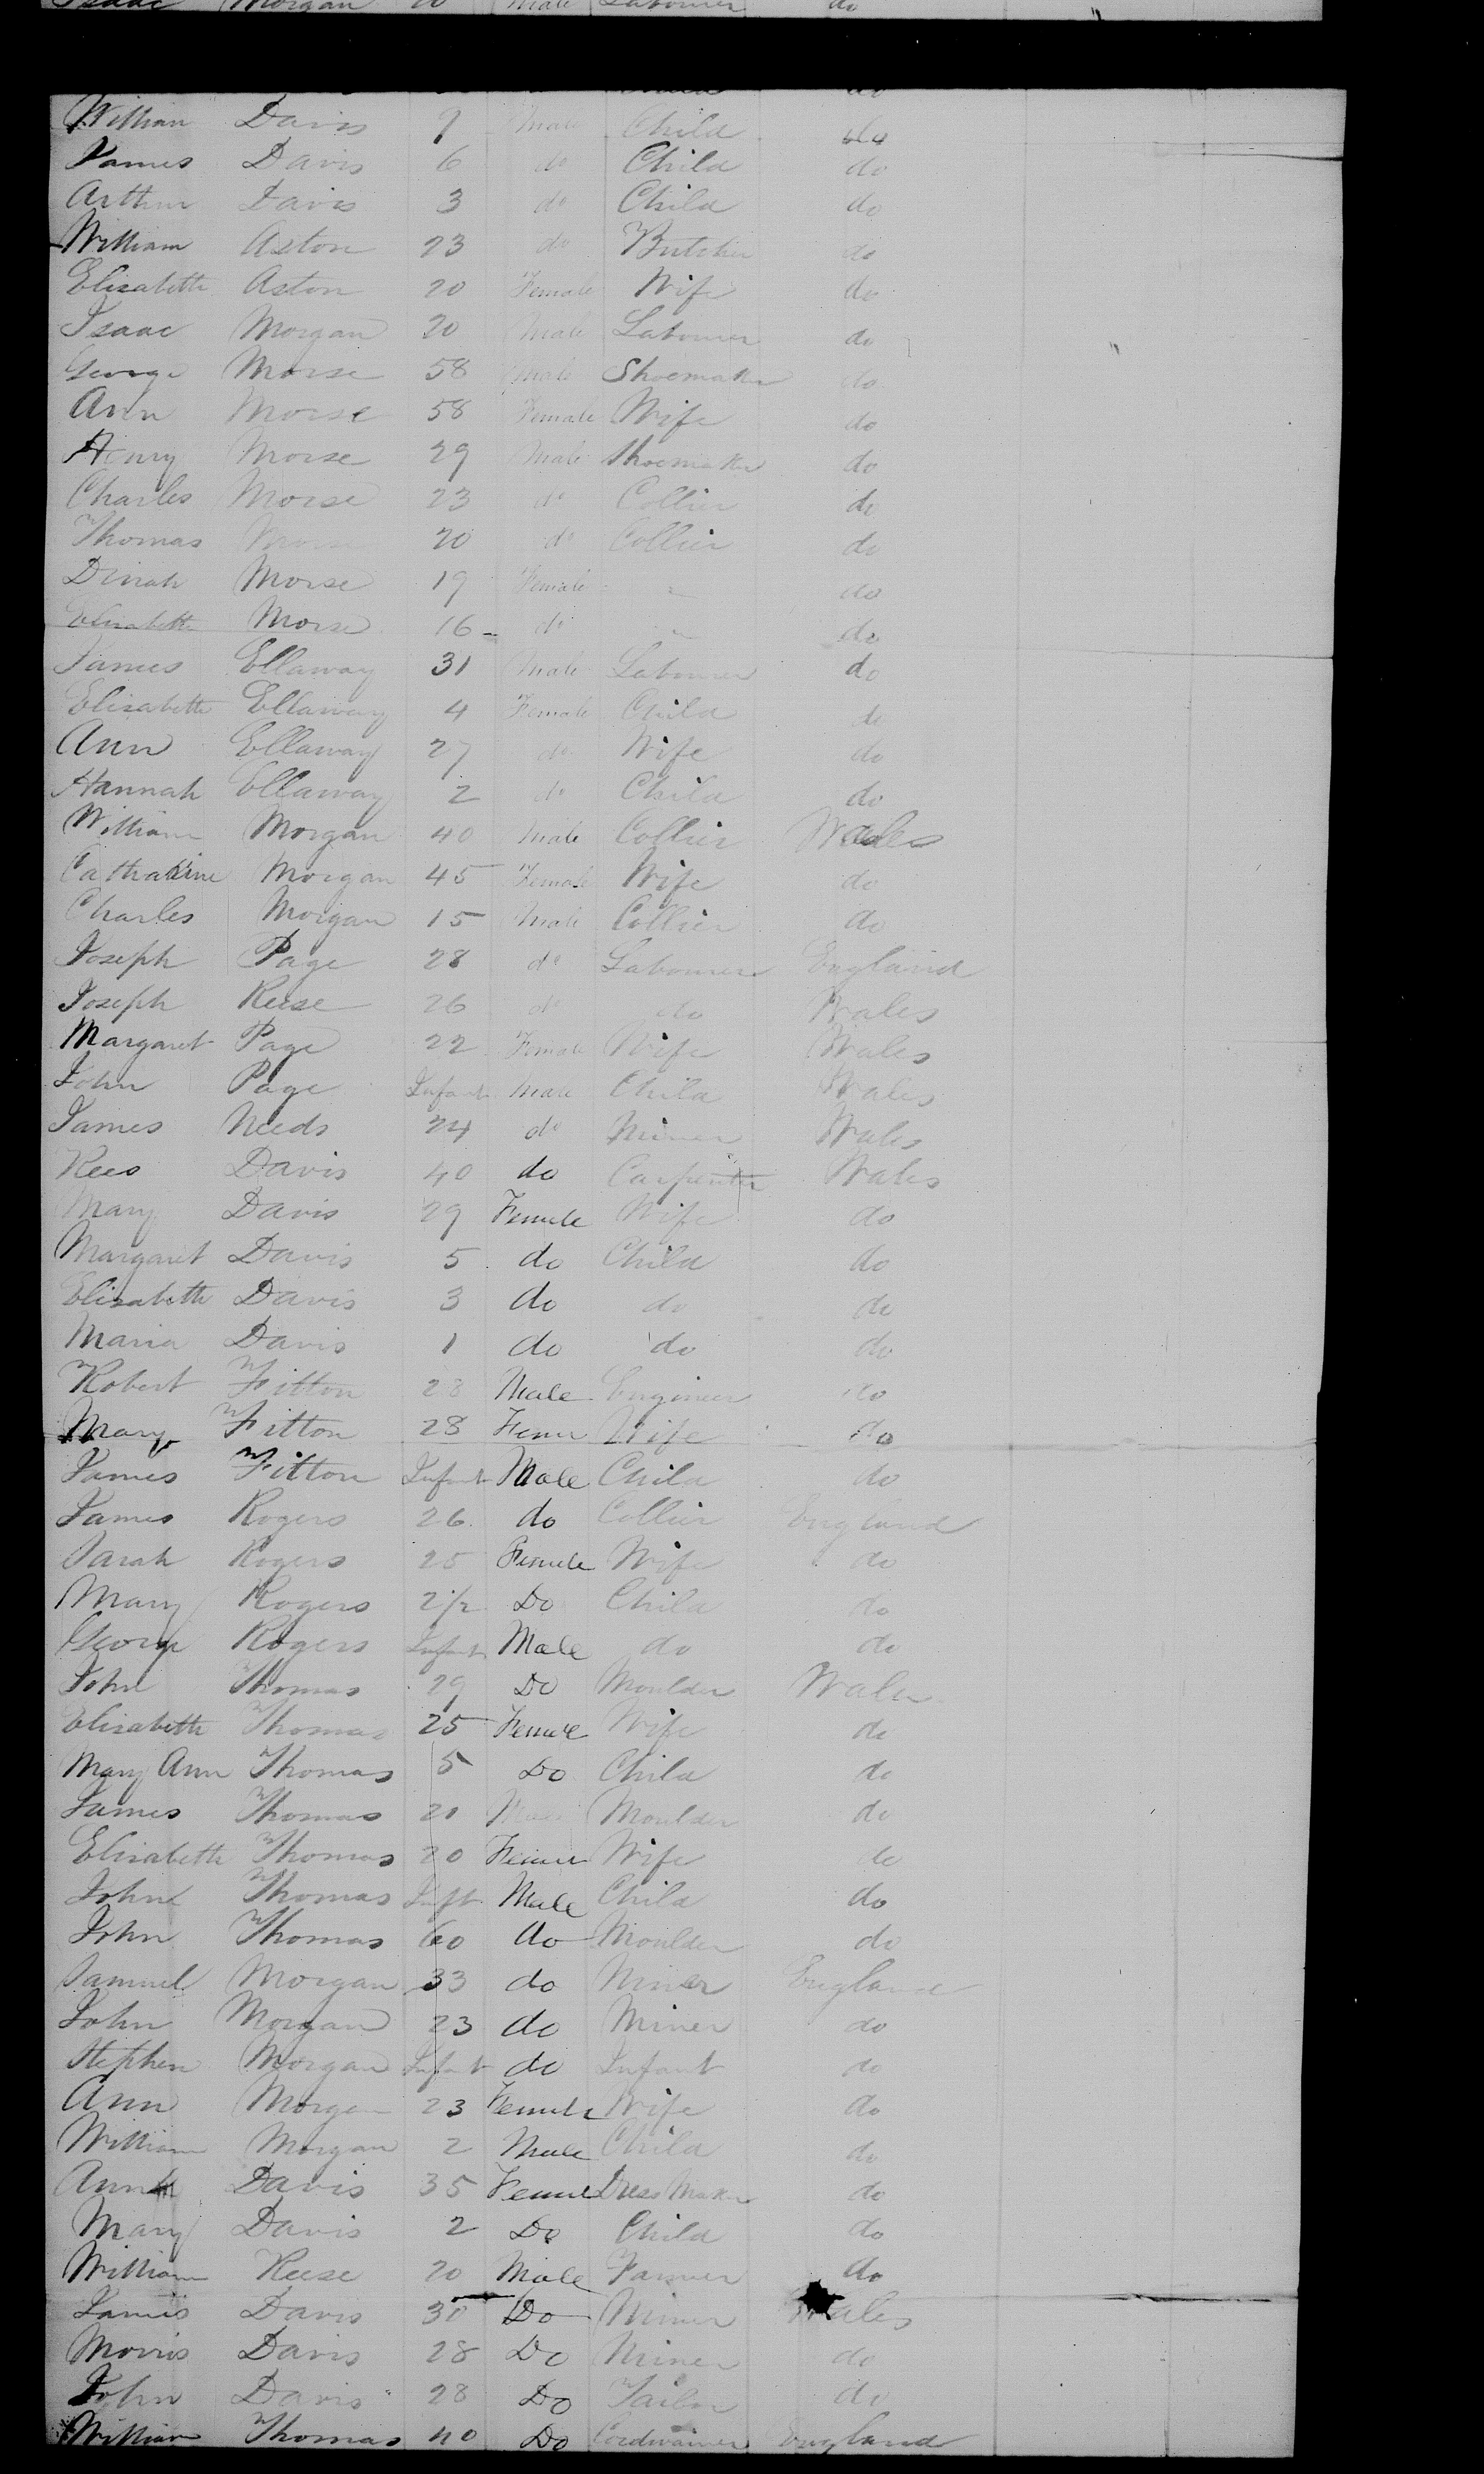 Isaac Morgan 20 Male Labourer do
William Davis 9 Male Child do
James Davis 6 do Child do
Arthur Davis 3 do Child do
William Aston 23 do Butcher do
Elisabeth Aston 20 Female Wife do
Isaac Morgan 20 Male Labourer do
George Morse 58 Male Shoemaker do
Ann Morse 58 Female Wife do
Henry Morse 29 Male Shoemaker do
Charles Morse 23 do Collier do
Thomas Morse 20 do Collier do
Dinah Morse 19 Female " do
Elisabeth Morse 16 do " do
James Ellaway 31 Male Labourer do
Elisabeth Ellaway 4 Female Child do
Ann Ellaway 27 do Wife do
Hannah Ellaway 2 do Child do
William Morgan 40 Male Collier Wales
Catharine Morgan 45 Female Wife do
Charles Morgan 15 Male Collier do
Joseph Page 28 do Labourer England
Joseph Reese 26 do do Wales
Margaret Page 22 Female Wife Wales
John Page Infant Male Child Wales
James Needs 24 do Miner Wales
Rees Davis 40 do Carpenter Wales
Mary Davis 29 Female Wife do
Margaret Davis 5 do Child do
Elisabeth Davis 3 do do do
Maria Davis 1 do do do
Robert Fitton 28 Male Engineer do
Mary Fitton 28 Feme Wife do
James Fitton Infant Male Child do
James Rogers 26 do Collier England
Sarah Rogers 25 Female Wife do
Mary Rogers 2½ Do Child do
George Rogers Infant Male do do
John Thomas 29 Do Moulder Wales
Elisabeth Thomas 25 Female Wife do
Mary Ann Thomas 5 Do Child do
James Thomas 20 Male Moulder do
Elisabeth Thomas 20 Female Wife do
John Thomas Inft Male Child do
John Thomas 60 do Moulder do
Samuel Morgan 33 do Miner England
John Morgan 23 do Miner do
Stephen Morgan Infant do Infant do
Ann Morgan 23 Female Wife do
William Morgan 2 Male Child do
Ann Davis 35 Female Dress Maker do
Mary Davis 2 Do Child do
William Reese 20 Male Farmer do
James Davis 30 Do Miner Wales
Morris Davis 28 Do Miner do
John Davis 28 Do Tailor do
William Thomas 40 Do Cordwainer England